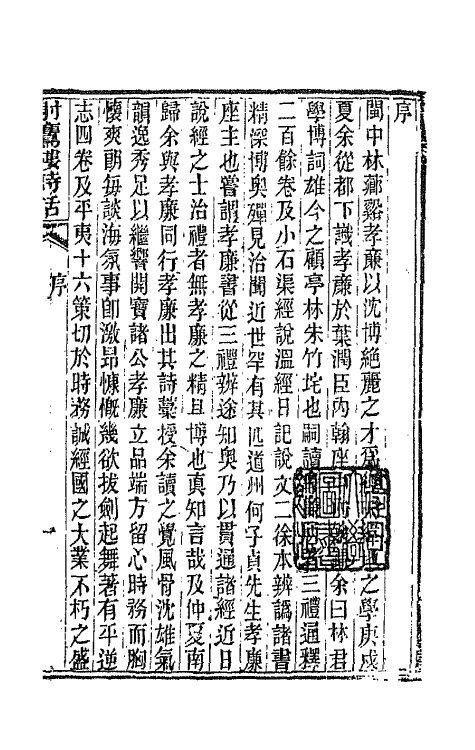 序
閩中林薌谿孝廉以沈博絶麗之才爲之學庚戍
夏余從都下識孝廉於葉潤臣內翰座余曰林君
學博詞雄今之顧亭林朱竹垞也嗣讀三禮通釋
二百餘卷及小石渠經說溫經日記說文二徐本辨譌諸書
精深博奧殫見洽聞近世罕有其匹道州何子貞先生孝廉
座主也嘗謂孝廉書從三禮辨途知奧乃以貫通諸經近日
說經之士治禮者無孝廉之精且博也真知言哉及仲夏南
歸余與孝廉同行孝廉出其詩藁授余讀之覺風骨沈雄氣
韻逸秀足以繼響開寶諸公孝廉立品端方留心時務而胸
懷爽朗每談海氛事卽激昂慷慨幾欲拔劍起舞著有平逆
志四卷及平夷十六策切於時務誠經國之大業不朽之盛
射鷹樓詩話
序